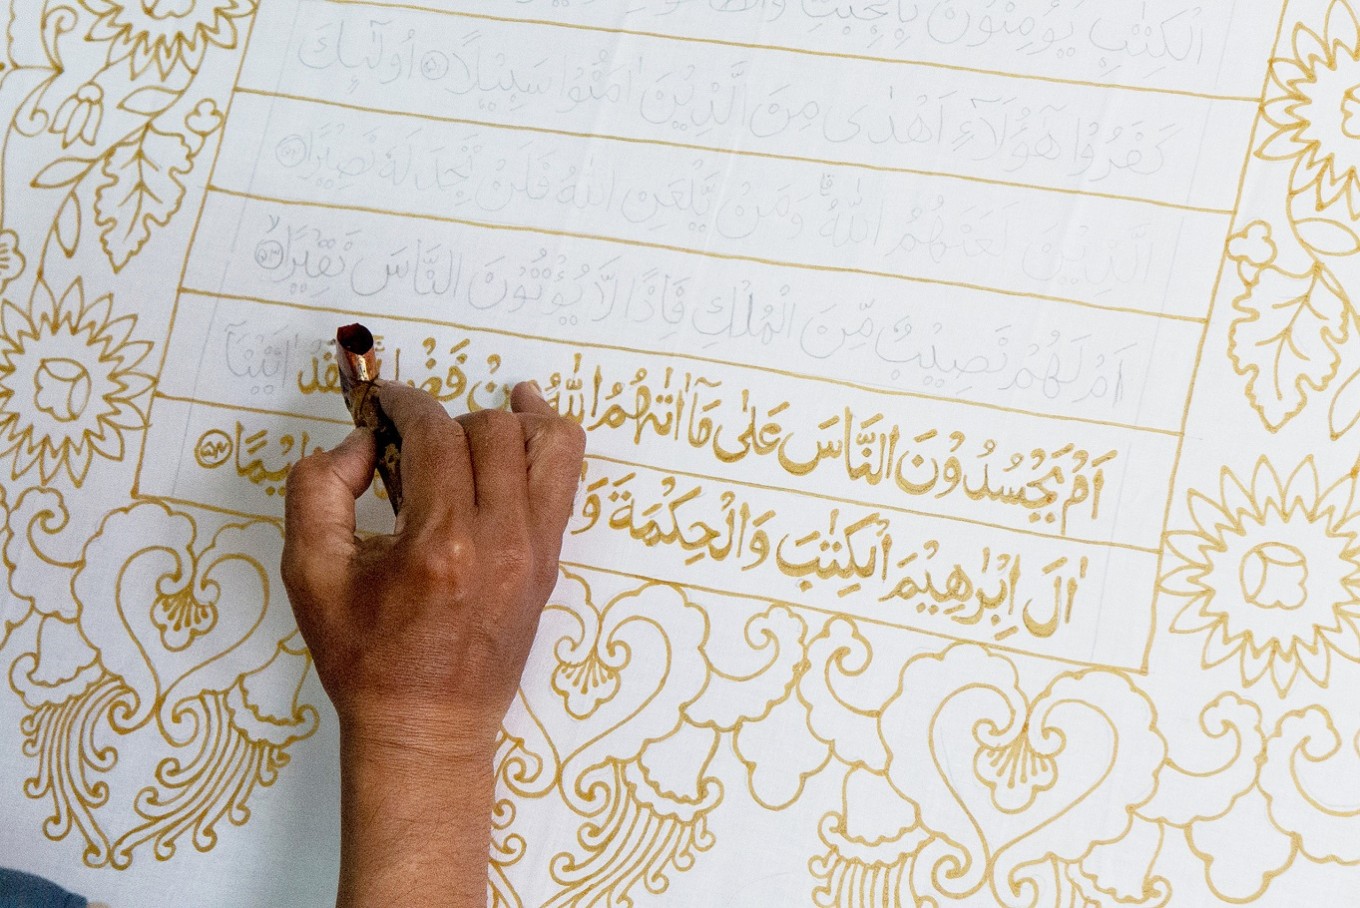 الْكِتٰبِ يُؤْمِنُوْنَ بِالْجِبْتِ
كَفَرُوْا هٰٓؤُلَاۤءِ اَهْدٰى مِنَ الَّذِيْنَ اٰمَنُوْا سَبِيْلًا ۝٥١ اُولٰۤىِٕكَ
الَّذِيْنَ لَعَنَهُمُ اللّٰهُ ۗ وَمَنْ يَّلْعَنِ اللّٰهُ فَلَنْ تَجِدَ لَهٗ نَصِيْرًا ۝٥٢
اَمْ لَهُمْ نَصِيْبٌ مِّنَ الْمُلْكِ فَاِذًا لَّا يُؤْتُوْنَ النَّاسَ نَقِيْرًاۙ ۝٥٣
اَمْ يَحْسُدُوْنَ النَّاسَ عَلٰى مَآ اٰتٰىهُمُ اللّٰهُ مِنْ فَضْلِهٖ فَقَدْ اٰتَيْنَآ
اٰلَ اِبْرٰهِيْمَ الْكِتٰبَ وَالْحِكْمَةَ ۝٥٤